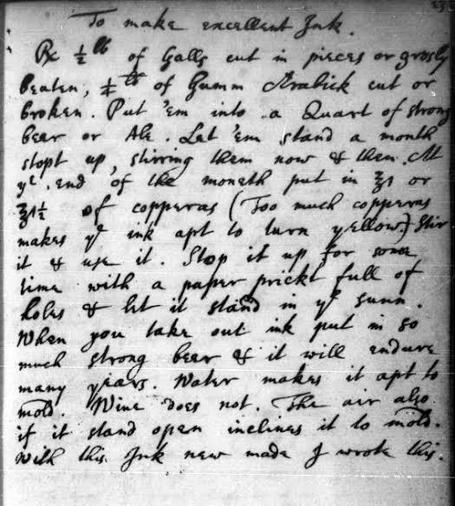 To make excellent Ink.
℞ ½ lb of Galls cut in pieces or grosly
beaten, ¼ lb of Gumm Arabick cut or
broken. Put 'em into a Quart of strong
beer or Ale. Let 'em stand a month
stopt up, stirring them now & then. At
ye end of the moneth put in ℥1 or
℥1½ of copperas (Too much copperas
makes ye ink apt to turn yellow.) Stir
it & use it. Stop it up for some
time with a paper prickt full of
holes & let it stand in ye sunn.
When you take out ink put in so
much strong beer & it will endure
many years. Water makes it apt to
mold. Wine does not. The air also
if it stand open inclines it to mold.
With this Ink new made I wrote this.